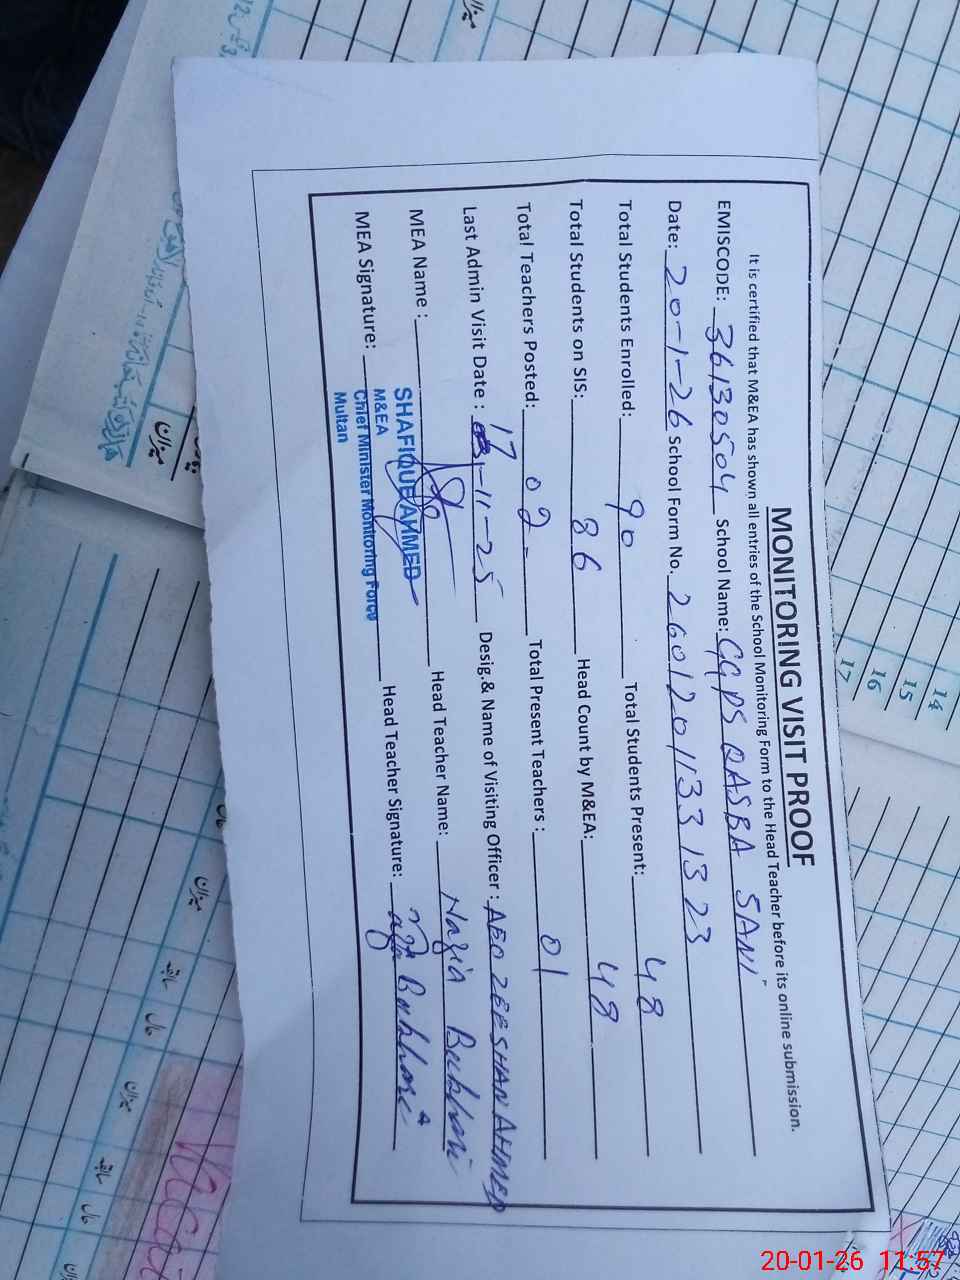 MONITORING VISIT PROOF
It is certified that M&EA has shown all entries of the School Monitoring Form to the Head Teacher before its online submission.
EMISCODE: 36130504 School Name: GGPS QASBA SANI
Date: 20-1-26 School Form No. 26012011331323
Total Students Enrolled: 90 Total Students Present: 48
Total Students on SIS: 86 Head Count by M&EA: 48
Total Teachers Posted: 02 Total Present Teachers : 01
Last Admin Visit Date : 17-11-25 Desig.& Name of Visiting Officer : AEO ZEESHAN AHMED
MEA Name : Head Teacher Name: Nazia Bukhari
MEA Signature: Head Teacher Signature: Bukhari
SHAFIQUE AHMED
M&EA
Chief Minister Monitoring Force
Multan
14
15
16
17
میزان
میزان
میزان
سابقہ
حال
میزان
سابقہ
حال
20-01-26 11:57